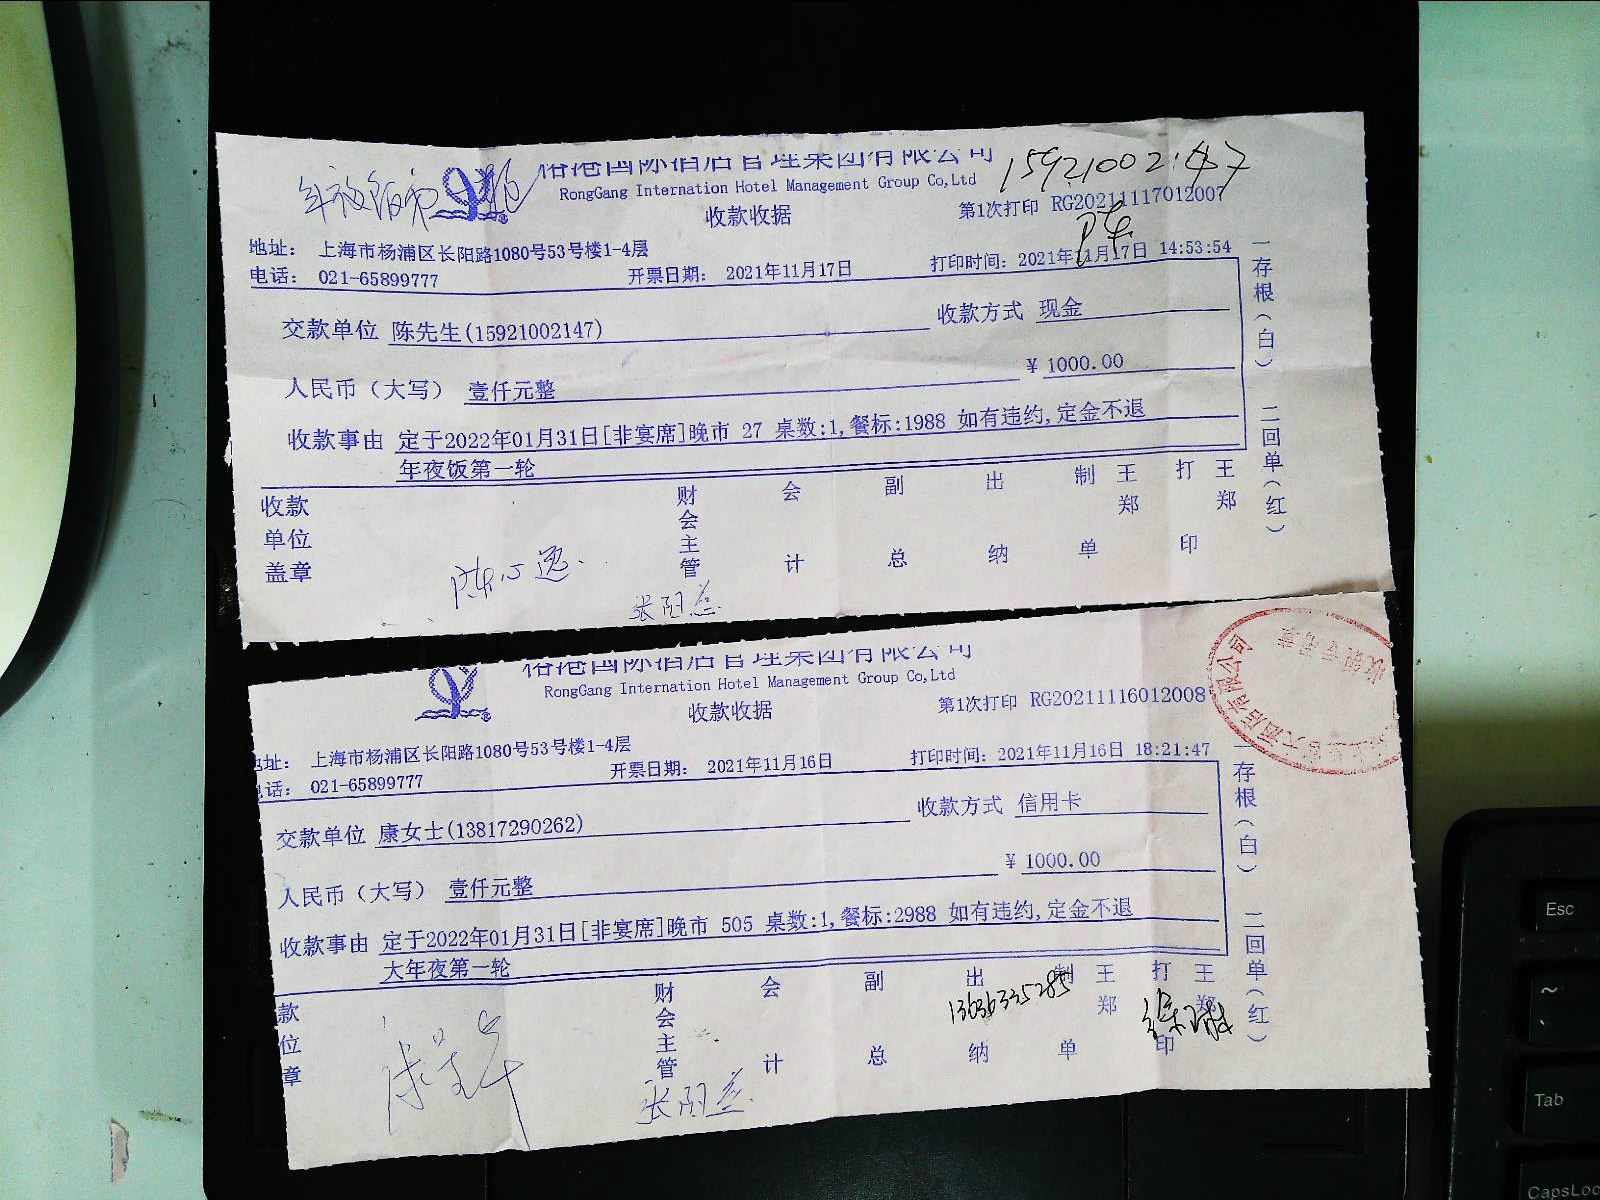 裕港国际酒店管理集团有限公司
RongGang Internation Hotel Management Group Co,Ltd
15921002147
年夜饭
收款收据
第1次打印 RG20211117012007
陈
地址： 上海市杨浦区长阳路1080号53号楼1-4层
电话： 021-65899777 开票日期： 2021年11月17日 打印时间：2021年11月17日 14:53:54
交款单位 陈先生(15921002147) 收款方式 现金
人民币（大写） 壹仟元整 ¥ 1000.00
收款事由 定于2022年01月31日[非宴席]晚市 27 桌数:1,餐标:1988 如有违约,定金不退
年夜饭第一轮
收款单位盖章 财会主管 会计 副总 出纳 制单 王郑 打印 王郑
一存根（白） 二回单（红）
裕港国际酒店管理集团有限公司
RongGang Internation Hotel Management Group Co,Ltd
收款收据
第1次打印 RG20211116012008
地址： 上海市杨浦区长阳路1080号53号楼1-4层
电话： 021-65899777 开票日期： 2021年11月16日 打印时间：2021年11月16日 18:21:47
交款单位 康女士(13817290262) 收款方式 信用卡
人民币（大写） 壹仟元整 ¥ 1000.00
收款事由 定于2022年01月31日[非宴席]晚市 505 桌数:1,餐标:2988 如有违约,定金不退
大年夜第一轮
款位章 财会主管 会计 副总 出纳 制单 王郑 打印 王郑
13636335285
一存根（白） 二回单（红）
大酒店有限公司
收银专用章
Esc
~
Tab
CapsLoc